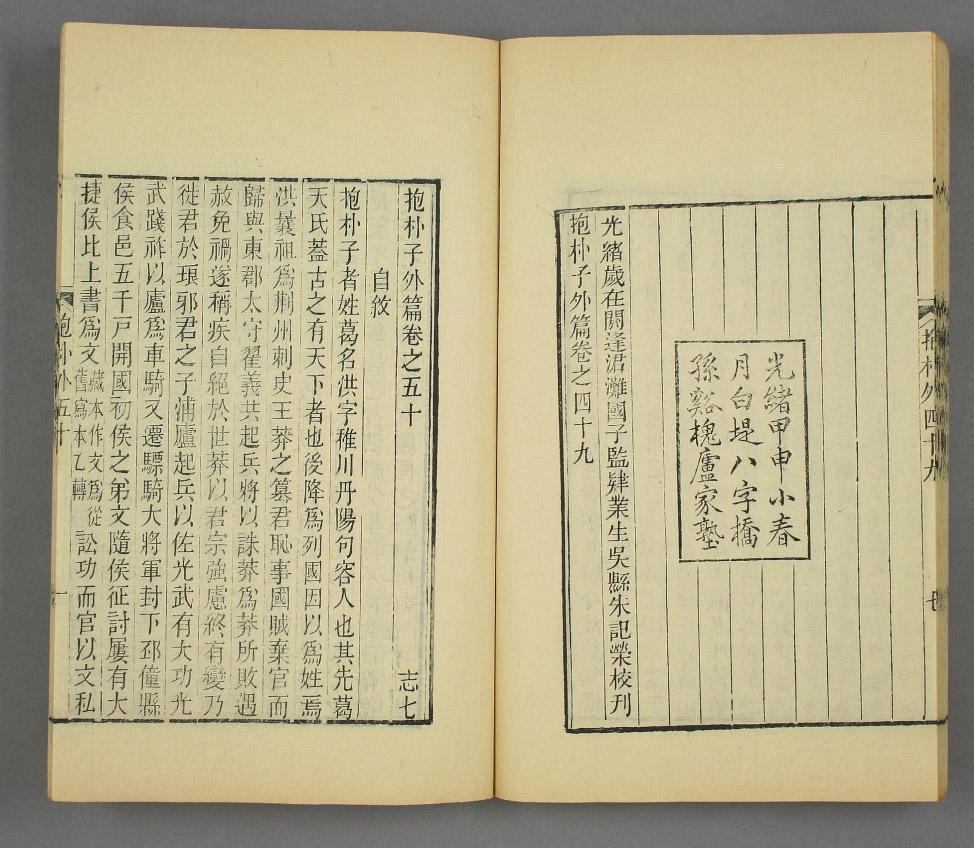 抱朴外四十九
七
光緒甲申小春
月白堤八字橋
孫谿槐廬家塾
光緒歲在閼逢涒灘國子監肄業生吳縣朱記榮校刊
抱朴子外篇卷之四十九
抱朴子外篇卷之五十
志七
自敘
抱朴子者姓葛名洪字稚川丹陽句容人也其先葛
天氏葢古之有天下者也後降爲列國因以爲姓焉
洪曩祖爲荆州刺史王莽之篡君恥事國賊棄官而
歸與東郡太守翟義共起兵將以誅莽爲莽所敗遇
赦免禍遂稱疾自絕於世莽以君宗強慮終有變乃
徙君於琅邪君之子浦廬起兵以佐光武有大功光
武踐祚以廬爲車騎又遷驃騎大將軍封下邳僮縣
侯食邑五千戸開國初侯之弟文隨侯征討屢有大
捷侯比上書爲文藏本作文爲從舊寫本乙轉訟功而官以文私
抱朴外五十
一